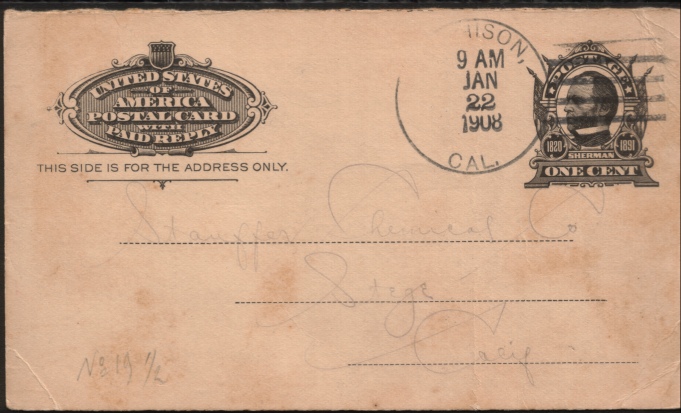 UNITED STATES
OF
AMERICA
POSTAL CARD
WITH
PAID REPLY
THIS SIDE IS FOR THE ADDRESS ONLY.
9 AM
JAN
22
1908
CAL.
POSTAGE
1820 1891
SHERMAN
ONE CENT
Stauffer Chemical Co
Stege
Calif
No 19 1/2